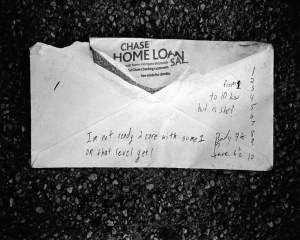 CHASE
HOME LOAN
SAL
1
from 1 2
3
to 10 how 4
hot is she? 5
6
7
I'm not ready 2 care with some1
on that level yet!
Body 9½ 8
9
face 6½ 10